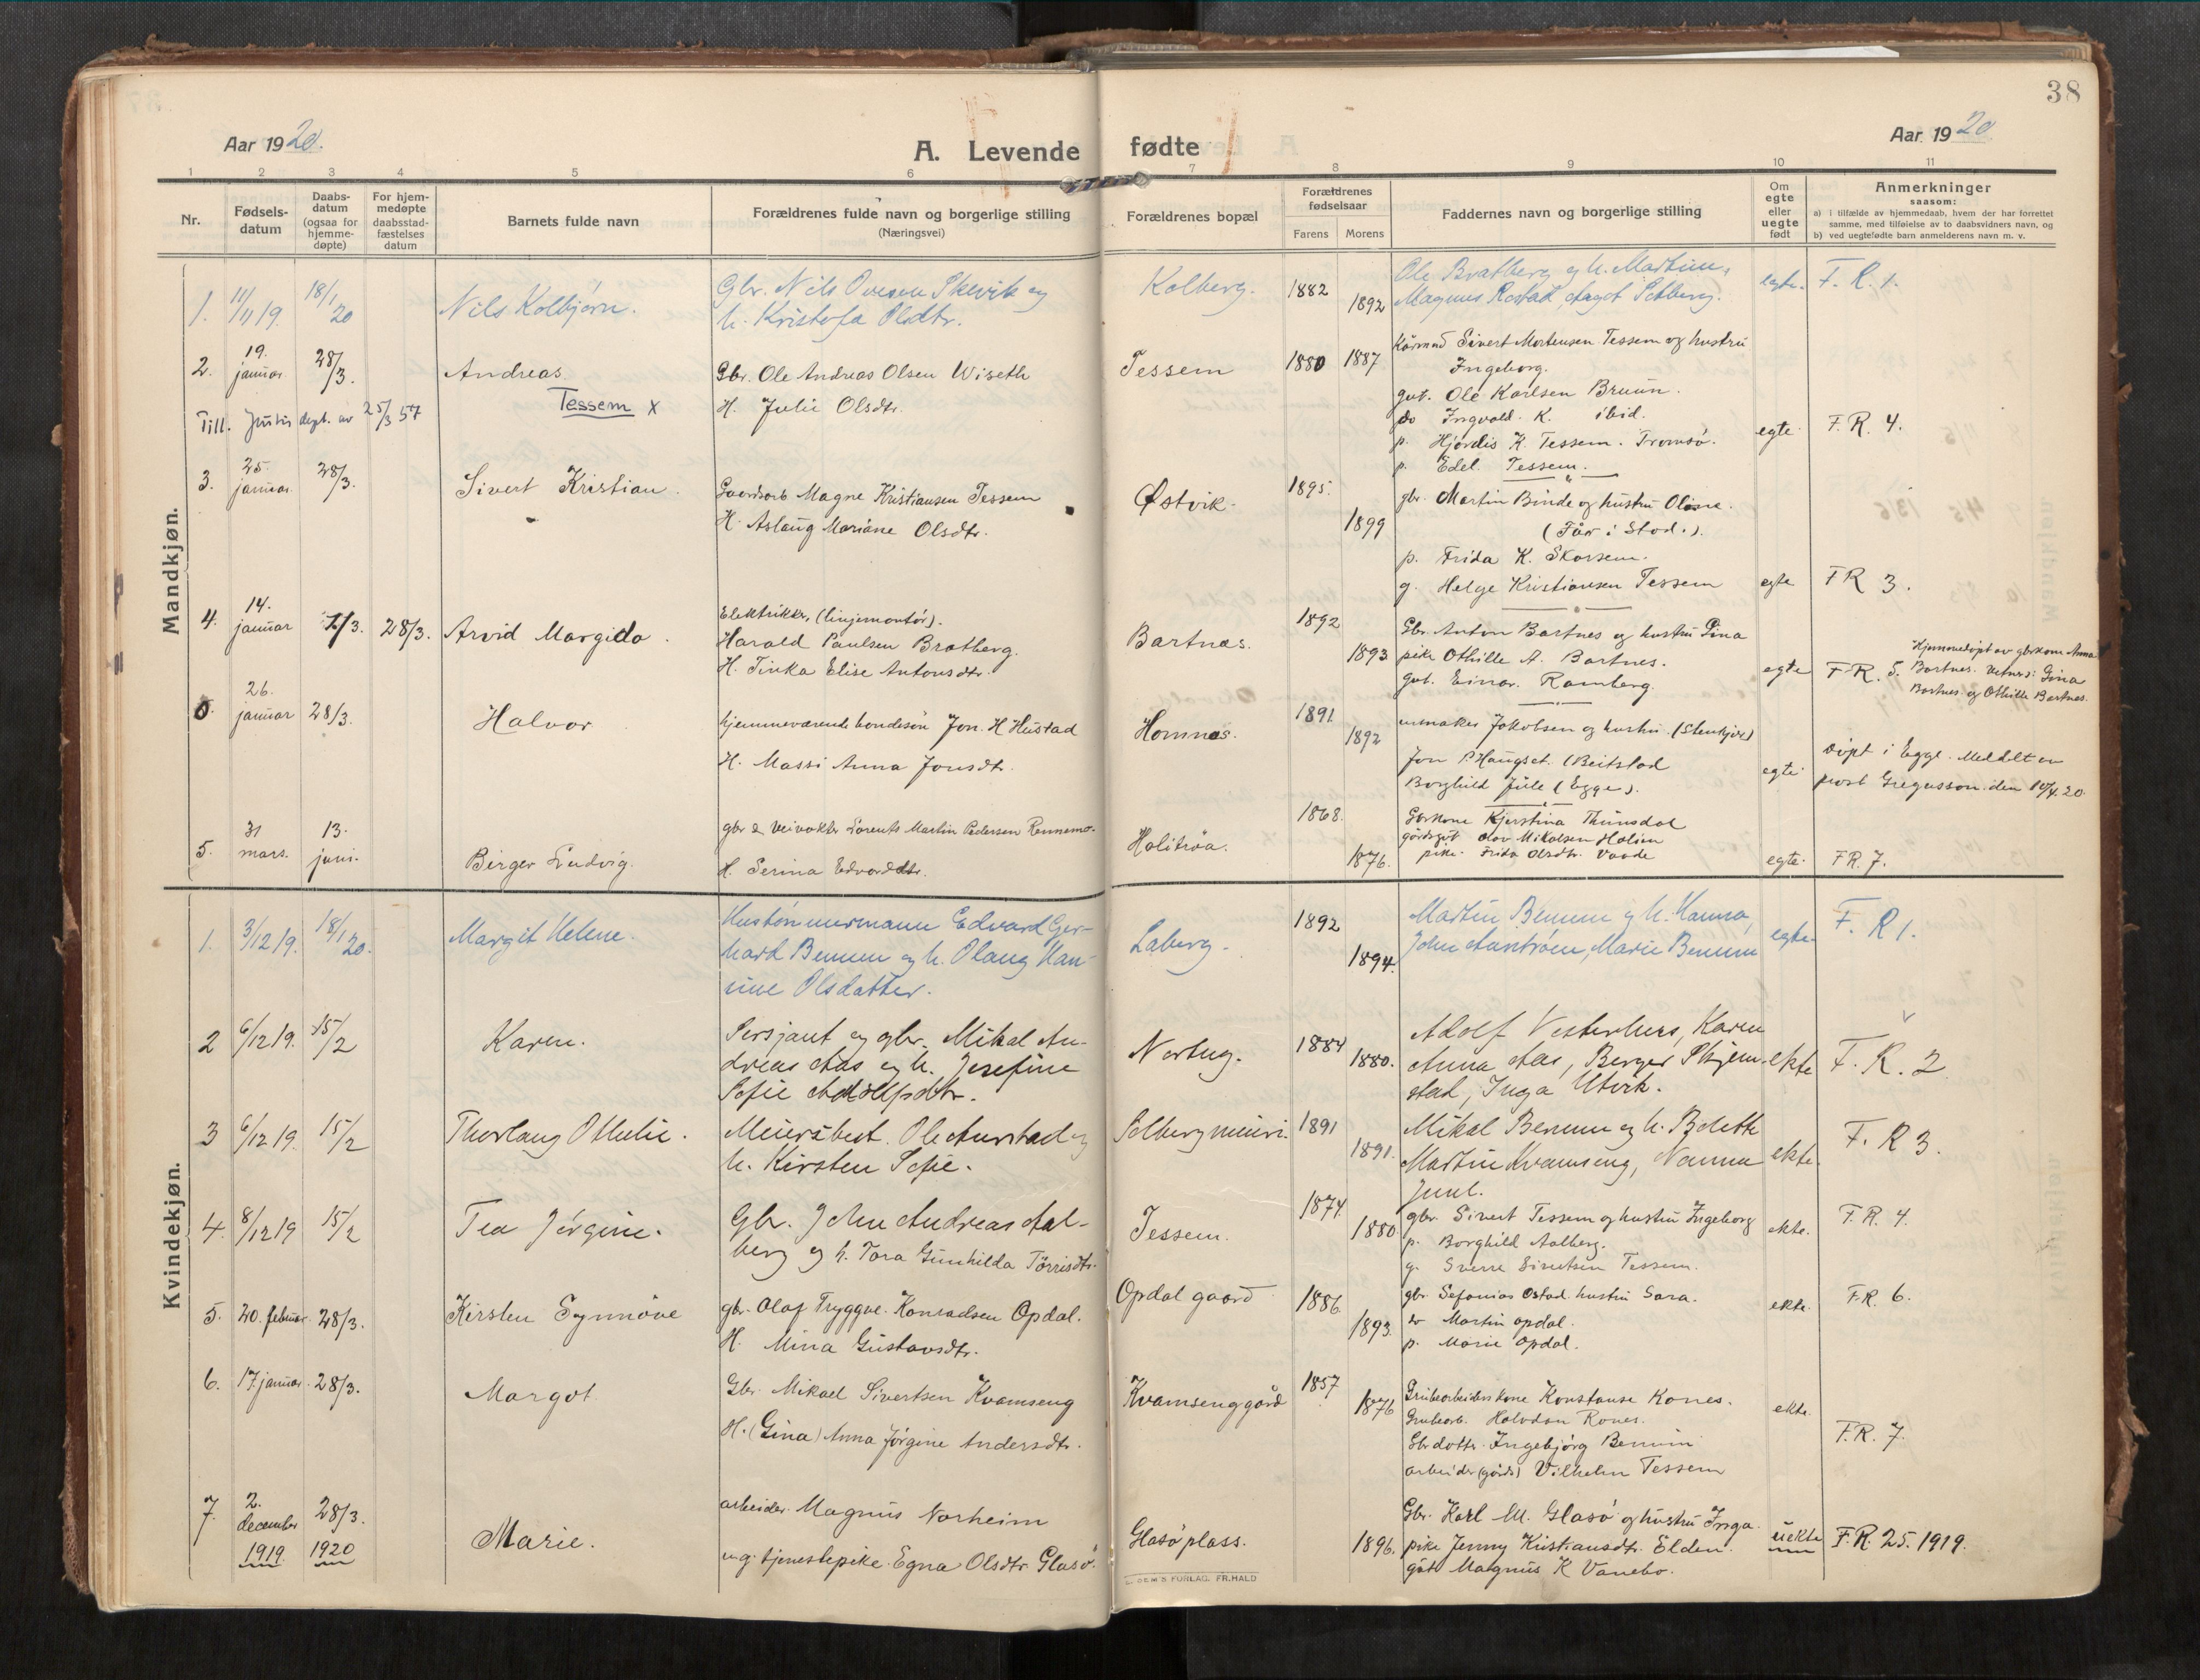 38
Aar 1920.
A. Levende fødte
Aar 1920
1 2 3 4 5 6 7 8 9 10 11
Nr.
Fødsels-
datum
Daabs-
datum
(ogsaa for
hjemme-
døpte)
For hjem-
medøpte
daabsstad-
fæstelses
datum
Barnets fulde navn
Forældrenes fulde navn og borgerlige stilling
(Næringsvei)
Forældrenes bopæl
Forældrenes
fødselsaar
Farens Morens
Faddernes navn og borgerlige stilling
Om
egte
eller
uegte
født
Anmerkninger
saasom:
a) i tilfælde av hjemmedaab, hvem der har forrettet
samme, med tilføielse av to daabsvidners navn, og
b) ved uegtefødte barn anmelderens navn m. v.
Mandkjøn.
1. 11/11 19. 18/1 20 Nils Kolbjørn.
Gbr. Nils Ovesen Skevik og
h. Kristofa Olsdtr.
Kolberg. 1882 1892
Ole Bratberg og h. Martine,
Magnus Rostad, Aagot Solberg.
egte. F. R. 1.
2. 19. januar 28/3. Andreas
Tessem x
Till. Justisdept. av 25/3 57
Gbr. Ole Andreas Olsen Wiseth
H. Julie Olsdtr.
Tessem 1880 1887
Kårmand Sivert Mortensen Tessem og hustru
Ingeborg.
gut. Ole Karlsen Bruun.
do Ingvald. K. ibid.
p. Hjørdis K. Tessem. Tromsø.
p. Edel Tessem.
egte F. R. 4.
3. 25. januar 28/3. Sivert Kristian.
Gaardsarb Magne Kristiansen Tessem
H. Aslaug Mariane Olsdtr.
Østvik. 1895. 1899
gbr. Martin Binde og hustru Oline.
(Får i Stod.).
p. Frida K. Skorsem.
g. Helge Kristiansen Tessem
egte FR 3.
4. 14. januar 7/3. 28/3. Arvid Margido.
Elektriker, (linjemontør).
Harald Paulsen Bratberg.
H. Tinka Elise Antonsdtr.
Bartnes. 1892 1893
Gbr. Anton Bartnes og hustru Gina
pike Othilie A. Bartnes.
gut. Einar. Ramberg.
egte FR. 5.
Hjemmedøpt av gbrkone Anna
Bartnes. Vitner: Gina
Bartnes og Othilie Bartnes.
0. 26. januar 28/3. Halvor
hjemmeværende bondesøn Jon. H Hustad
H. Massi Anna Jonsdtr.
Homnes. 1891 1892
urmaker Jakobsen og hustru. (Stenkjer)
Jon P Haugset. (Beitstad
Borghild Jule (Egge).
egte
døpt i Egge. Meddelt av
prost Gregusson. den 10/4. 20.
5. 31 mars. 13. juni. Birger Ludvig.
gbr & veivokter Lorents Martin Pedersen Rennemo.
H. Serina Edvardsdtr.
Holitrøa. 1868. 1876.
Gbrkone Kjerstina Thunsdal
gårdsgut Olav Mikalsen Holien
pike Frida Olsdtr. Vaade
egte. FR. 7.
Kvindekjøn.
1. 3/12 19. 18/1 20. Margit Helene.
Hustømmermann Edvard Ger-
hard Benum og h. Olaug Han-
sine Olsdatter.
Laberg. 1892 1894.
Martin Benum og h. Hanna,
John Austrøen, Marie Benum
egte. F. R 1.
2 6/12 19. 15/2 Karen.
Sersjant og gbr. Mikal An-
dreas Aas og h. Josefine
Sofie Adolfsdtr.
Norbug. 1884 1880.
Adolf Vesterhus, Karen
Anna Aas, Berger Skjem-
stad, Inga Utvik.
ekte F. R. 2
3 6/12 19. 15/2 Thorlaug Othelie.
Meieribest. Ole Aurstad og
h. Kirsten Sofie.
Solberg meieri. 1891 1891.
Mikal Benum og h. Bolette
Martin Kvamseng, Nanna
Juul.
ekte. F. R 3.
4. 8/12 19 15/2 Tea Jørgine.
Gbr. John Andreas Aal-
berg og h. Tora Gunhilda Tørrisdtr.
Tessem. 1874. 1880
gbr. Sivert Tessem og hustru Ingeborg
p. Borghild Aalberg.
g. Sverre Sivertsen Tessem.
ekte. F. R. 4.
5. 20. februar. 28/3. Kirsten Synnøve
gbr. Olaf Tryggve. Konradsen Opdal.
H. Mina Gustavsdtr.
Opdal gaard 1886. 1893.
gbr. Sefanias Ostad hustru Sara.
Martin Opdal.
p. Marie Opdal.
ekte. F.R. 6.
6. 17. januar. 28/3. Margot.
Gbr. Mikael Sivertsen Kvamseng
H. (Gina) Anna Jørgine Andersdtr.
Kvamseng gård 1857 1876
Grubearbeiderskone Konstanse Rones.
Grubearb. Halvdan Rones.
Gbrdotter Ingebjørg Benum
arbeider (gårds) Vilhelm Tessem
ekte. F.R. 7.
7. 2. december 1919 28/3. 1920 Marie.
arbeider Magnus Norheim
ug. tjenestepike. Egna Olsdtr. Glasø.
Glasøplass. 1896.
Gbr. Karl M. Glasø og hustru Inga.
pike Jenny Kristiansdtr. Elden.
gåt Magnus K Vanebo.
uekte F.R. 25. 1919.
FORLAG. FR.HALD